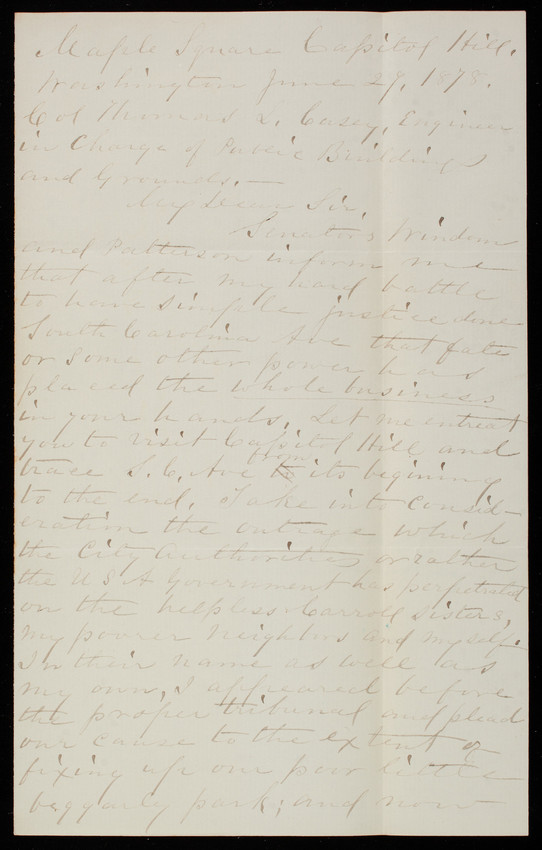 Maple Square Capitol Hill.
Washington June 29, 1878.
Col Thomas L. Casey, Engineer
in Charge of Public Buildings
and Grounds.—
My Dear Sir,
Senators Windom
and Patterson inform me
that after my hard battle
to have simple justice done
South Carolina Ave that fate
or some other power has
placed the whole business
in your hands. Let me entreat
you to visit Capitol Hill and
trace S. C. Ave from its begining
to the end. Take into consid-
eration the outrage which
the City Authorities, or rather
the U S A Government has perpetrated
on the helpless Carroll Sisters,
my poorer neighbors and myself.
In their name as well as
my own, I appeared before
the proper tribunal and plead
our cause to the extent of
fixing up our poor little
beggarly park; and now